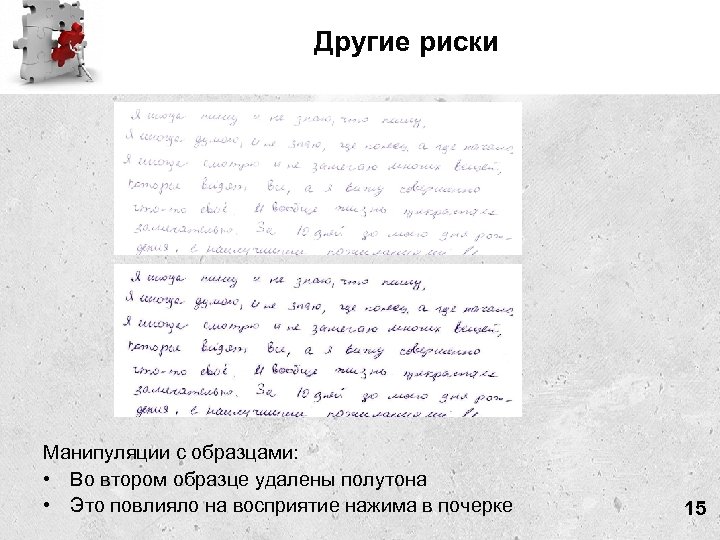 Другие риски
Я иногда пишу и не знаю, что пишу,
Я иногда думаю, и не знаю, где конец, а где начало,
Я иногда смотрю и не замечаю многих вещей,
которые видят все, а я вижу совершенно
что-то своё. И вообще жизнь прекрасна и
замечательно. За 10 дней до моего дня рож-
дения, с наилучшими пожеланиями
Я иногда пишу и не знаю, что пишу,
Я иногда думаю, и не знаю, где конец, а где начало,
Я иногда смотрю и не замечаю многих вещей,
которые видят все, а я вижу совершенно
что-то своё. И вообще жизнь прекрасна и
замечательно. За 10 дней до моего дня рож-
дения, с наилучшими пожеланиями
Манипуляции с образцами:
• Во втором образце удалены полутона
• Это повлияло на восприятие нажима в почерке
15